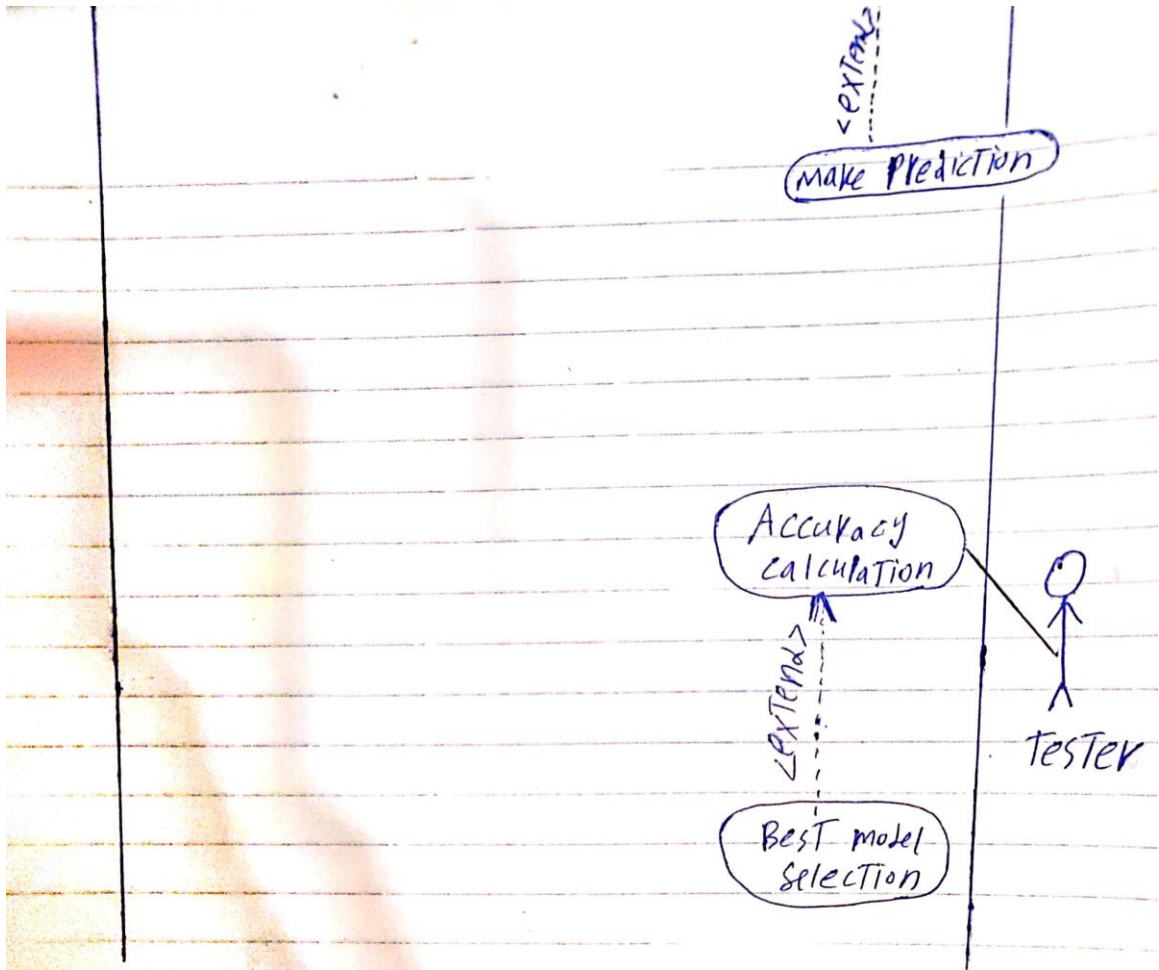 <extend>
Make Prediction
Accuracy
calculation
<extend>
Tester
Best model
selection